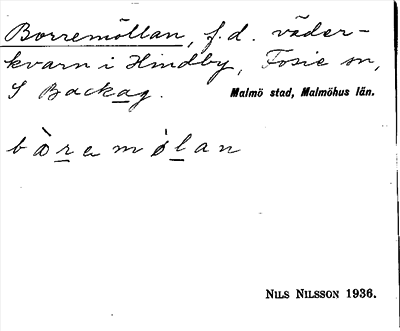 Borremöllan, f.d. väder-
kvarn i Hindby, Fosie sn,
S Backag. Malmö stad, Malmöhus län.
bòremø̀lan
NILS NILSSON 1936.